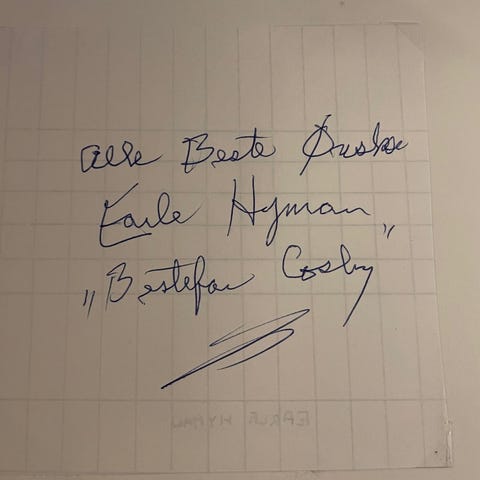 Alle Beste Ønske
Earle Hyman
„Bestefar Cosby"
EARLE HYMAN